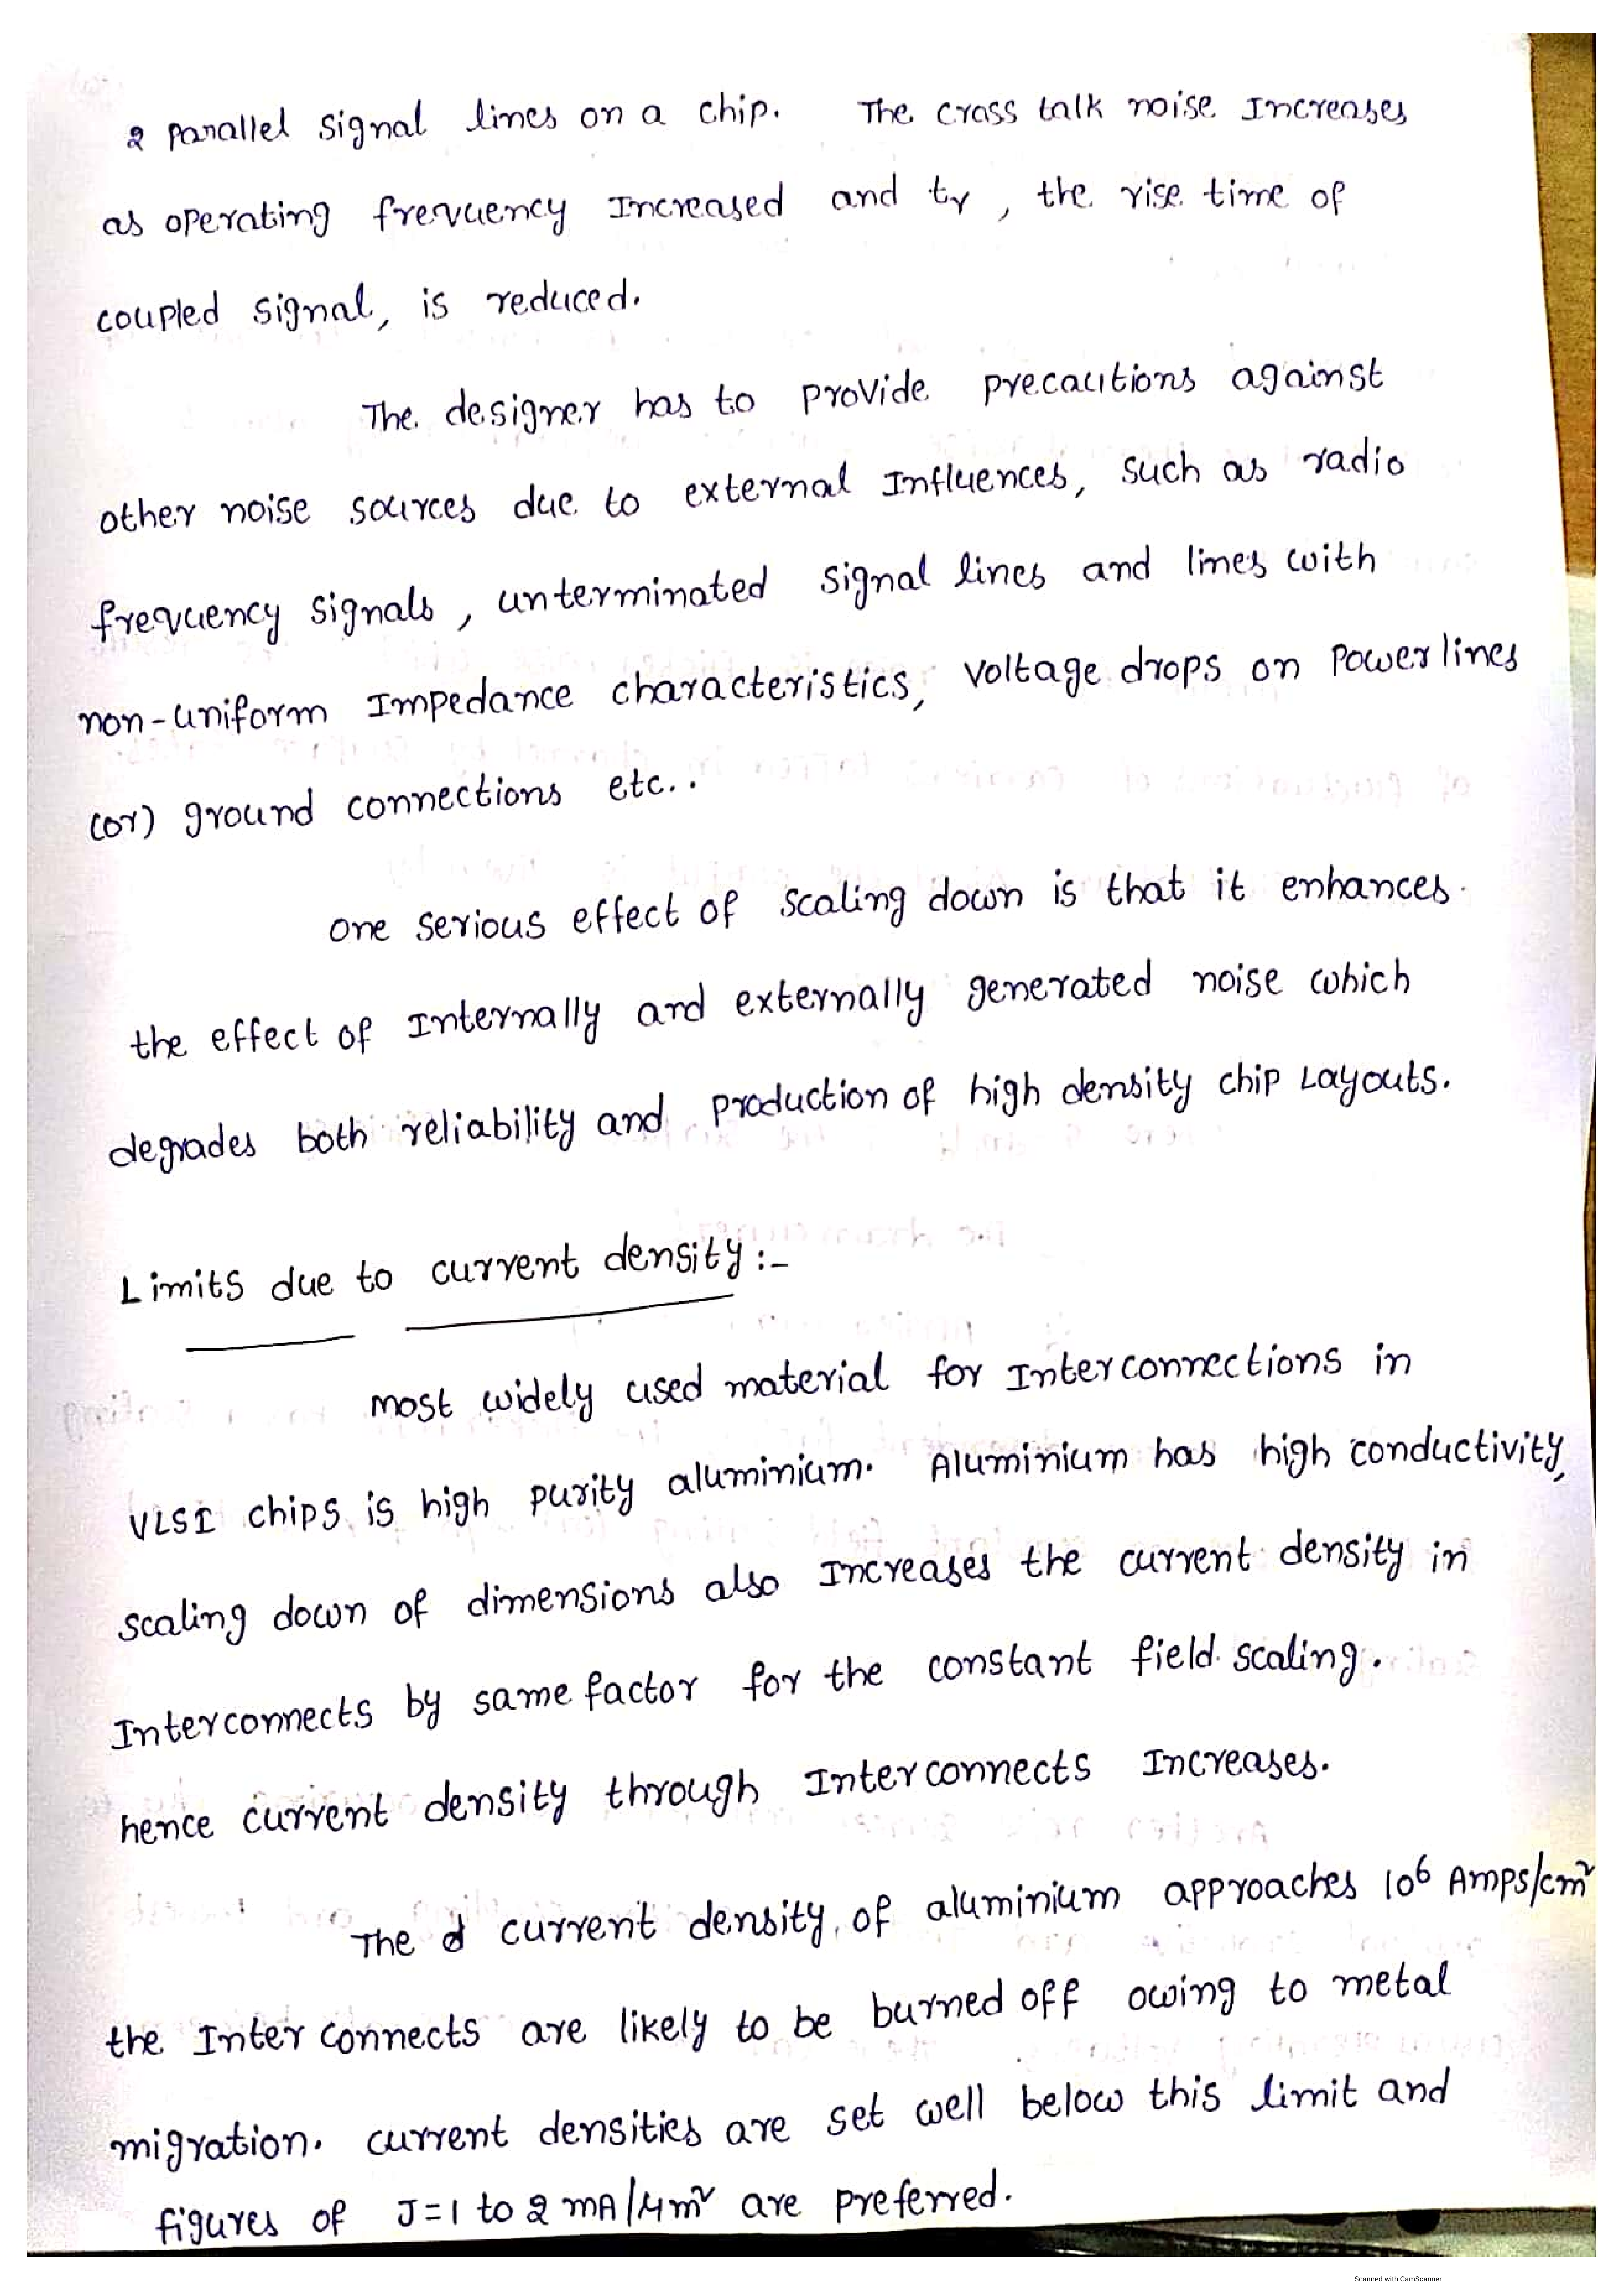 2 parallel signal lines on a chip. The cross talk noise Increases
as operating frequency Increased and tr, the rise time of
coupled signal, is reduced.
The designer has to provide precautions against
other noise sources due to external Influences, such as radio
frequency signals, unterminated signal lines and lines with
non-uniform Impedance characteristics, voltage drops on Power lines
(or) ground connections etc..
One serious effect of scaling down is that it enhances
the effect of Internally and externally generated noise which
degrades both reliability and production of high density chip Layouts.
Limits due to current density :-
most widely used material for Interconnections in
VLSI chips is high purity aluminium. Aluminium has high conductivity,
scaling down of dimensions also Increases the current density in
Interconnects by same factor for the constant field scaling.
hence current density through Interconnects Increases.
The d current density of aluminium approaches 10⁶ Amps/cm²
the Inter connects are likely to be burned off owing to metal
migration. current densities are set well below this limit and
figures of J=1 to 2 mA/μm² are preferred.
Scanned with CamScanner